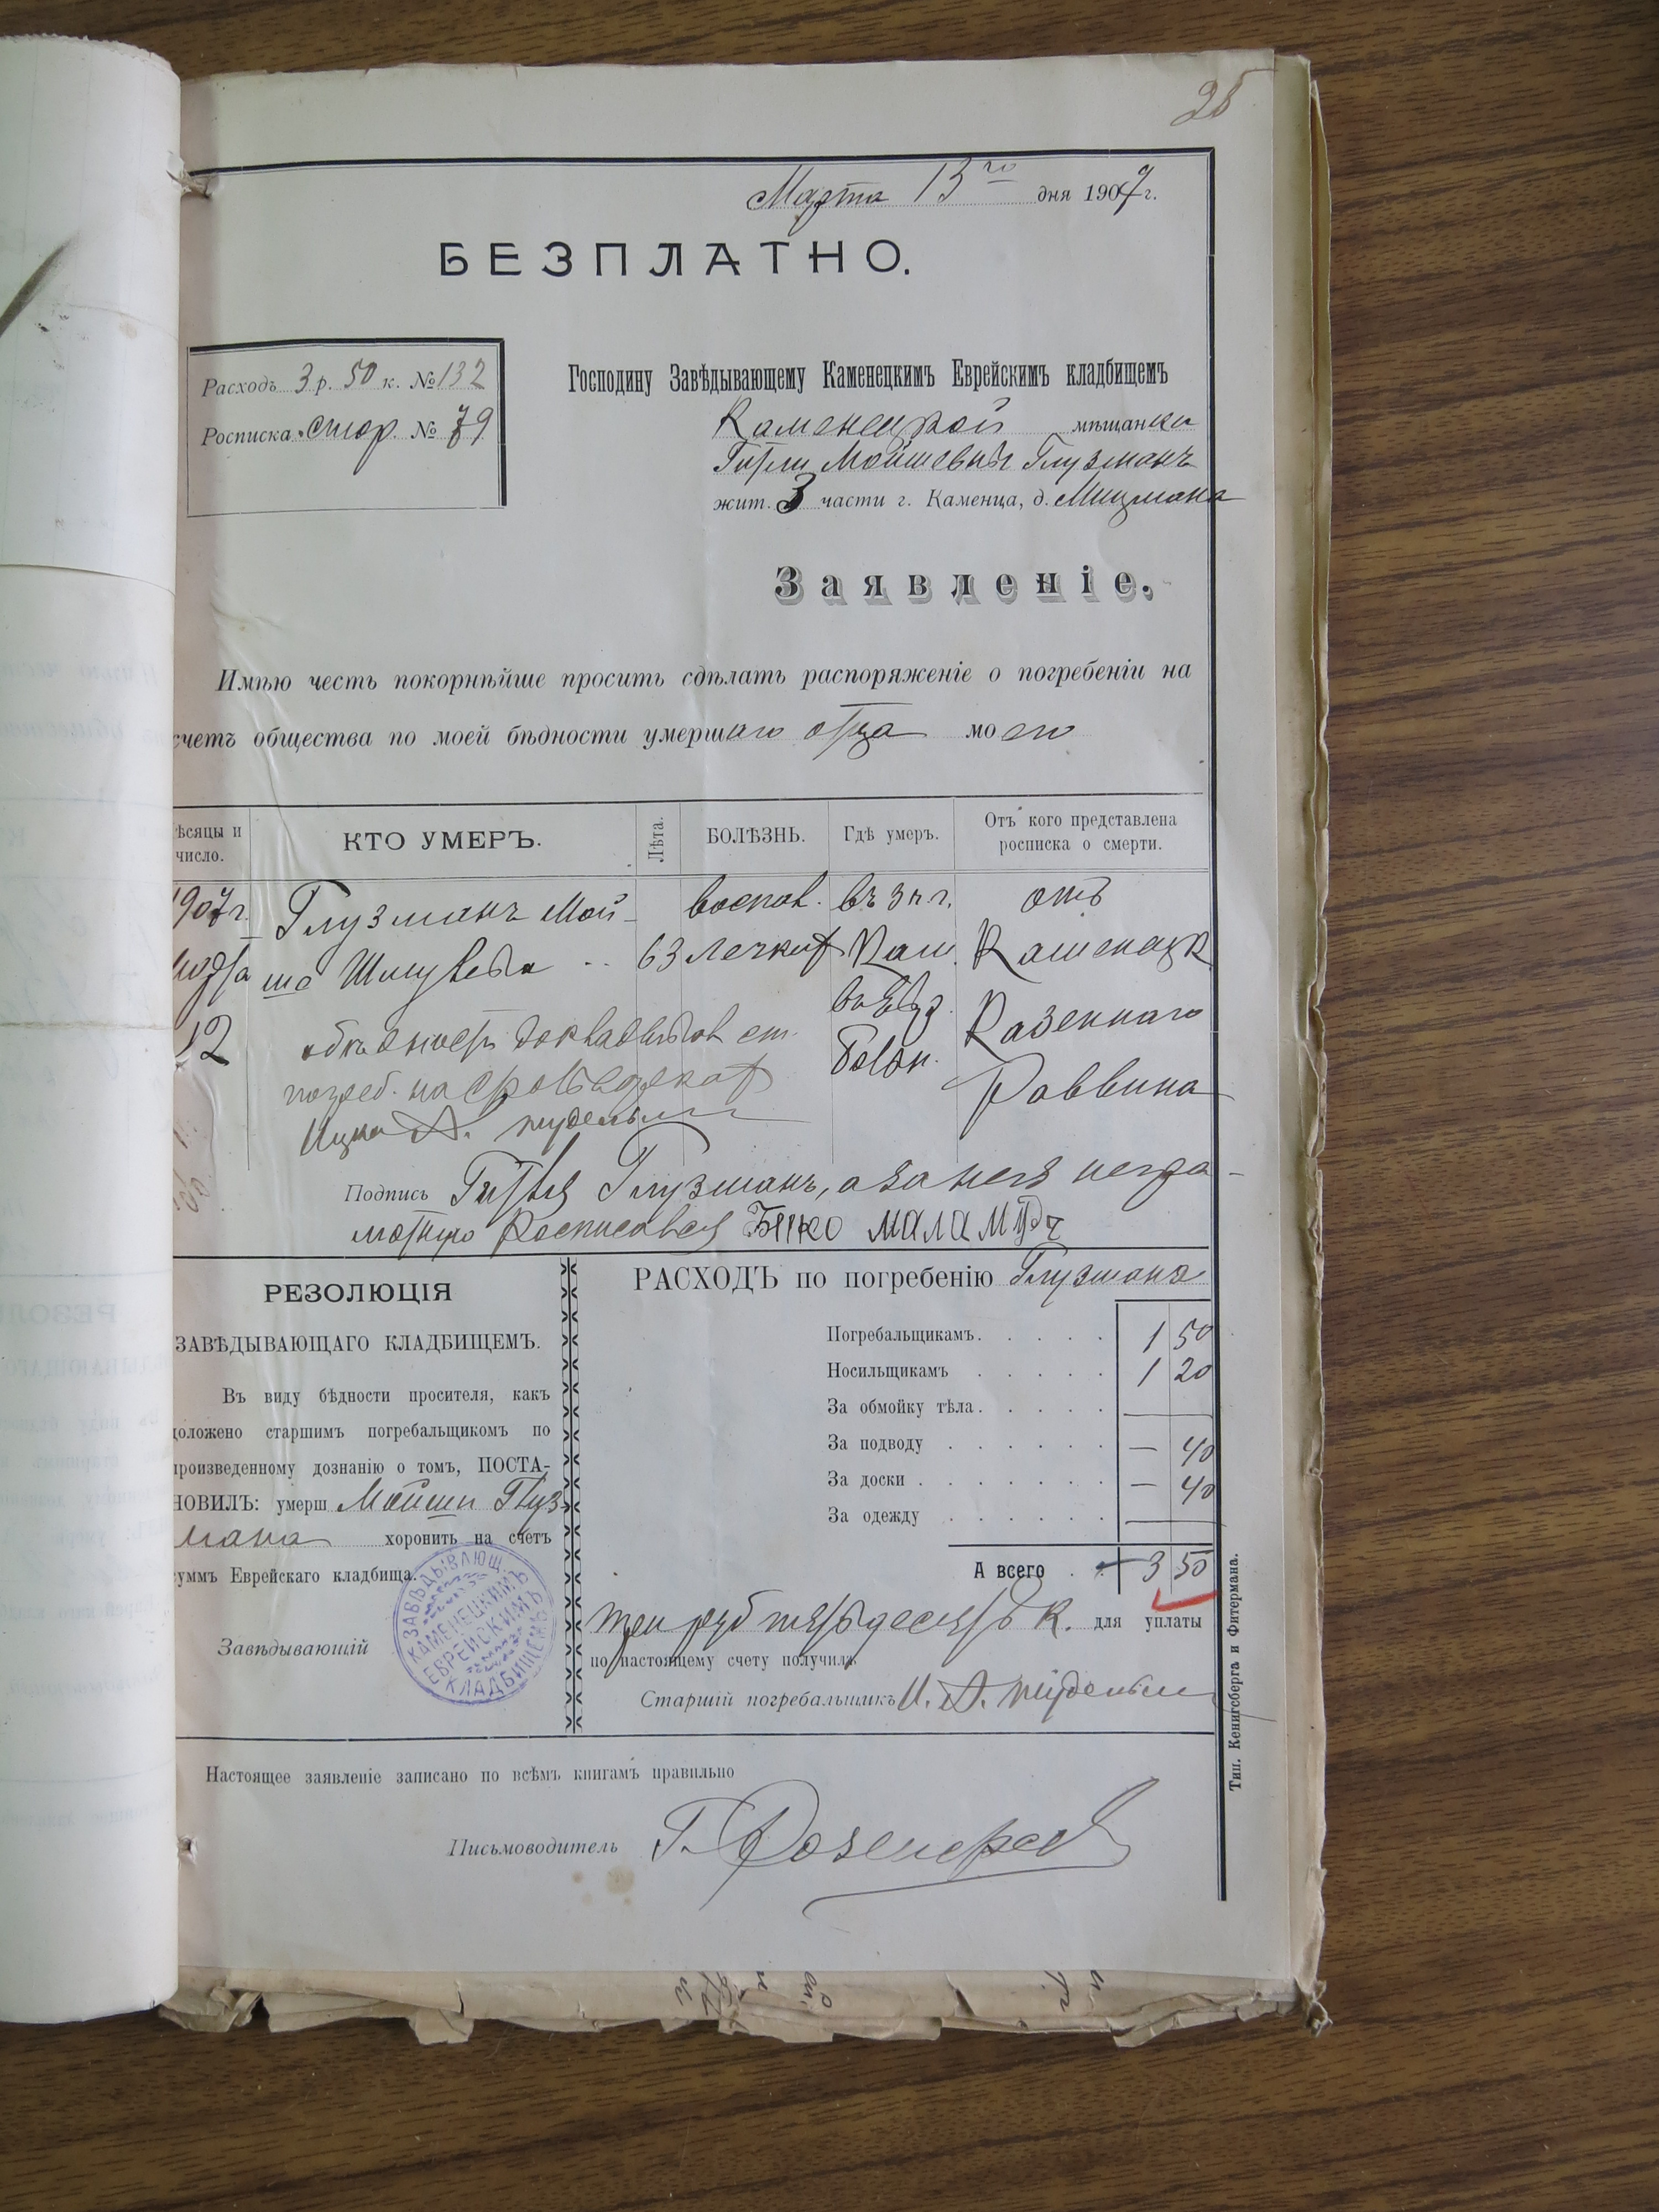 Марта 13го дня 1907 г.
БЕЗПЛАТНО.
Расходъ 3 р. 50 к. № 132
Росписка стор. № 79
Господину Завѣдывающему Каменецкимъ Еврейскимъ кладбищемъ
Каменецкой мѣщанки
Мойшевны Глузманъ
жит. 3 части г. Каменца, д. Мицмана
Заявленіе.
Имѣю честь покорнѣйше просить сдѣлать распоряженіе о погребеніи на
счетъ общества по моей бѣдности умершаго отца моего
ѣсяцы и число.
КТО УМЕРЪ.
Лѣта.
БОЛѢЗНЬ.
Гдѣ умеръ.
Отъ кого представлена росписка о смерти.
1907 г. Глузманъ Мой- воспал. отъ
марта ша 63 легких Кам. Каменецк
12
Казеннаго
Раввина
погреб.
Подпись Глузманъ, а за негра-
мотную Росписался маламудъ
РЕЗОЛЮЦІЯ
ЗАВѢДЫВАЮЩАГО КЛАДБИЩЕМЪ.
Въ виду бѣдности просителя, какъ
доложено старшимъ погребальщикомъ по
произведенному дознанію о томъ, ПОСТА-
НОВИЛЪ: умерш Мойши Глуз
мана хоронить на счетъ
суммъ Еврейскаго кладбища.
Завѣдывающій
ЗАВѢДЫВАЮЩ. КАМЕНЕЦКИМЪ ЕВРЕЙСКИМЪ КЛАДБИЩЕМЪ
РАСХОДЪ по погребенію Глузмана
Погребальщикамъ. 1 50
Носильщикамъ 1 20
За обмойку тѣла. —
За подводу — 40
За доски — 40
За одежду —
А всего 3 50
три руб пятьдесятъ к. для уплаты
по настоящему счету получилъ
Старшій погребальщикъ И. А.
Настоящее заявленіе записано по всѣмъ книгамъ правильно
Письмоводитель Г.
Тип. Кенигсберга и Фитермана.